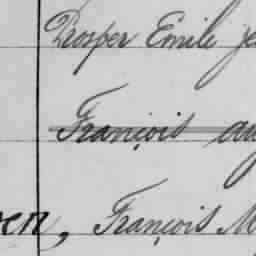 Prosper Emile je
François au
en, François M